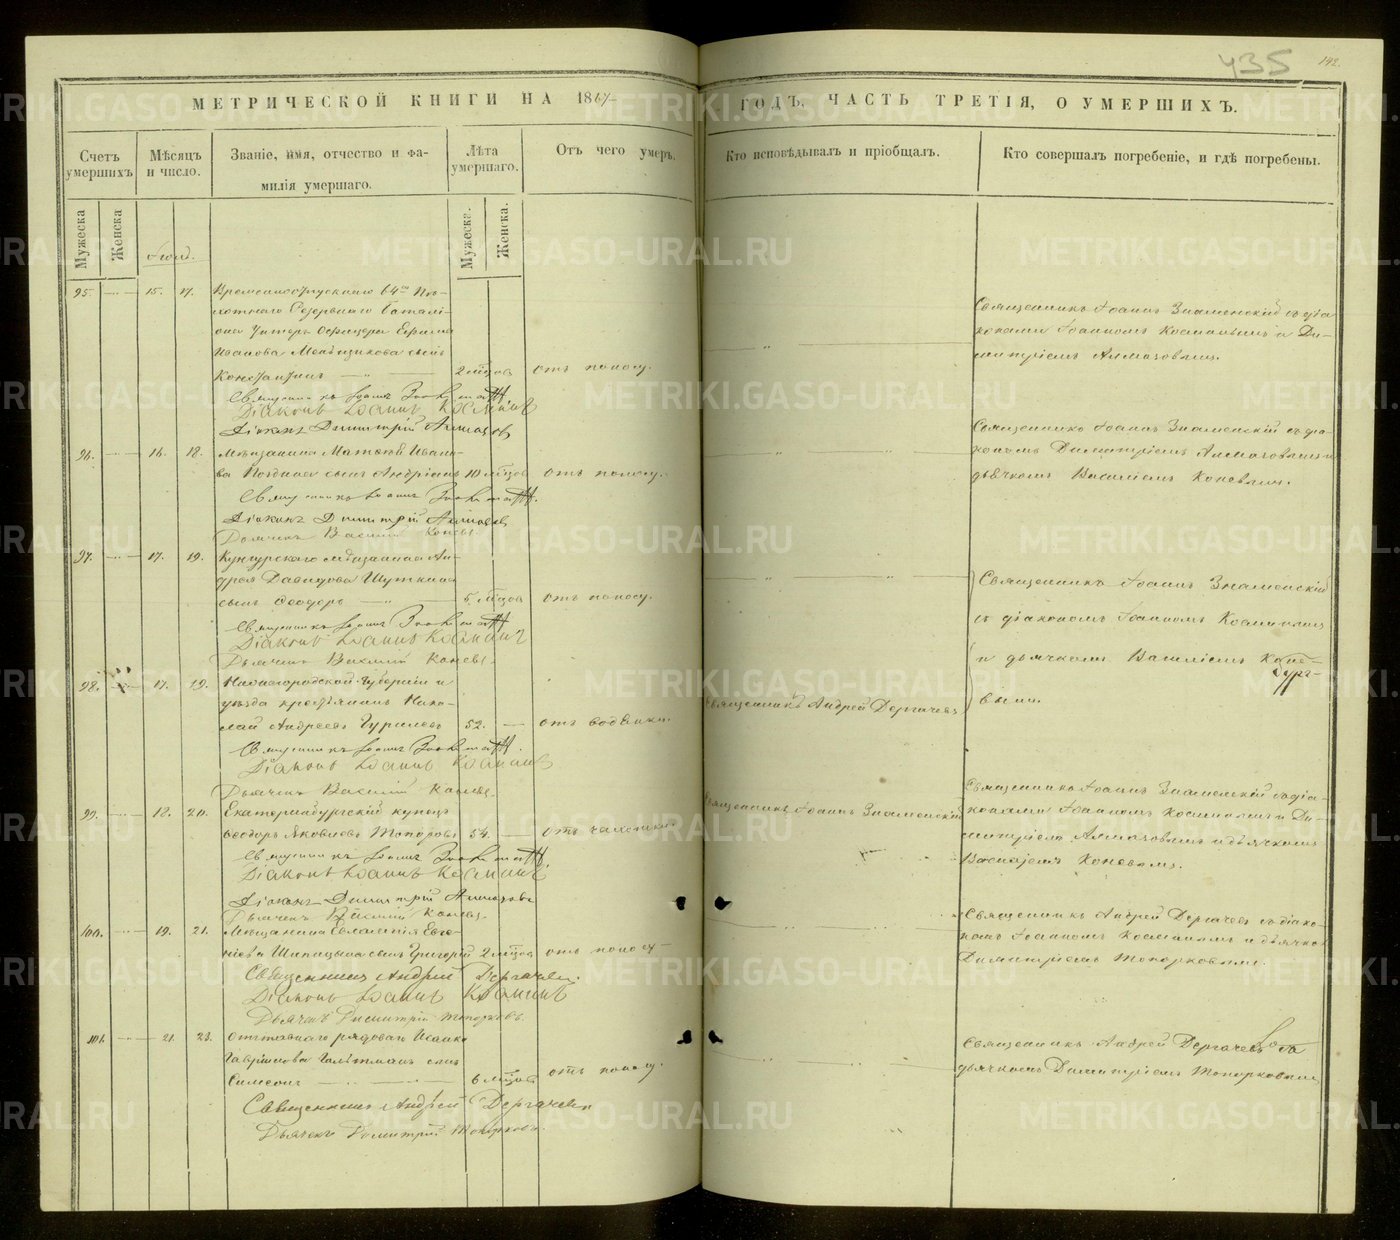 435
142.
МЕТРИЧЕСКОЙ КНИГИ НА 1867
ГОДЪ, ЧАСТЬ ТРЕТІЯ, О УМЕРШИХЪ.
Счетъ умершихъ
Мѣсяцъ и число.
Званіе, имя, отчество и фамилія умершаго.
Лѣта умершаго.
Отъ чего умеръ.
Кто исповѣдывалъ и пріобщалъ.
Кто совершалъ погребеніе, и гдѣ погребены.
Мужеска
Женска
Мужеска.
Женска.
95. 15. 17. Временноотпускнаго 64го Пѣ-
хотнаго Резервнаго Баталі-
она Унтеръ Офицера Ефима
Иванова сынъ
Константинъ 2 мцовъ отъ поносу.
Священникъ Іоаннъ Знаменскій съ діа-
конами Іоанномъ Косминымъ и Ди-
митріемъ Алмазовымъ.
Священникъ Іоаннъ
Діаконъ Іоаннъ Косминъ
Діаконъ Димитрій Алмазовъ
96. 16. 18. Мѣщанина Матвѣя Ивано-
ва сынъ Андріанъ 10 мцовъ отъ поносу.
Священникъ Іоаннъ Знаменскій съ діа-
кономъ Димитріемъ Алмазовымъ и
дьячкомъ Василіемъ Коневымъ.
Священникъ Іоаннъ
Діаконъ Димитрій Алмазовъ
Дьячекъ Василій Коневъ
97. 17. 19. Кунгурскаго мѣщанина Ан-
дрея Давидова
сынъ Ѳеодоръ 5 мцовъ отъ поносу.
Священникъ Іоаннъ Знаменскій
съ діакономъ Іоанномъ Косминымъ
и дьячкомъ Василіемъ Коне-
выми.
Священникъ Іоаннъ
Діаконъ Іоаннъ Косминъ
Дьячекъ Василій Коневъ.
98. 17. 19. Нижегородской Губерніи и
уѣзда крестьянинъ Нико-
лай Андреевъ Гурылевъ 52. отъ водянки.
Священникъ Андрей Дергачевъ
Священникъ Іоаннъ
Діаконъ Іоаннъ Косминъ
Дьячекъ Василій Коневъ.
99. 18. 20. Екатеринбургскій купецъ
Ѳеодоръ Яковлевъ Топоровъ 54. отъ чахотки.
Священникъ Іоаннъ Знаменскій
Священникъ Іоаннъ Знаменскій съ діа-
конами Іоанномъ Косминымъ и Ди-
митріемъ Алмазовымъ и дьячкомъ
Василіемъ Коневымъ.
Священникъ Іоаннъ
Діаконъ Іоаннъ Косминъ
Діаконъ Димитрій Алмазовъ
Дьячекъ Василій Коневъ.
100. 19. 21. Мѣщанина Евлампія Евге-
ніева Шипицына сынъ Григорій 2 мцовъ отъ поносу
Священникъ Андрей Дергачевъ съ діако-
номъ Іоанномъ Косминымъ и дьячко
Димитріемъ Топорковымъ.
Священникъ Андрей Дергачев.
Діаконъ Іоаннъ Косминъ
Дьячекъ Димитрій Топорковъ.
101. 21. 23. Отставнаго рядоваго Исаака
Гаврилова сынъ
Симеонъ 6 мцовъ отъ поносу.
Священникъ Андрей Дергачевъ съ
дьячкомъ Димитріемъ Топорковымъ
Священникъ Андрей Дергачевъ
Дьячекъ Димитрій Топорковъ.
METRIKI.GASO-URAL.RU